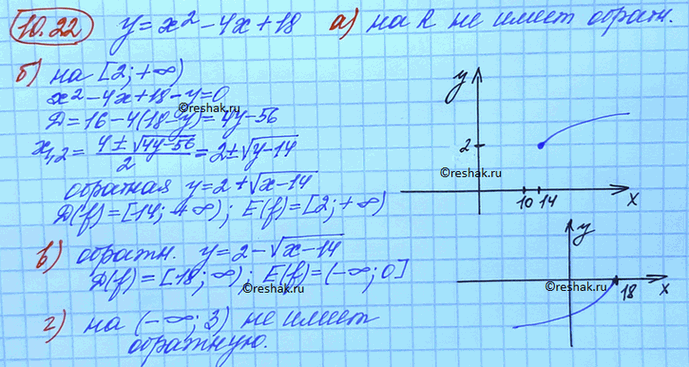 10.22 y = x² - 4x + 18 а) на R не имеет обратн.
б) на [2; +∞)
x² - 4x + 18 - y = 0
©reshak.ru
D = 16 - 4(18 - y) = 4y - 56
x₁,₂ = (4 ± √4y-56)/2 = 2 ± √y-14
обратная y = 2 + √x-14
D(f) = [14; +∞); E(f) = [2; +∞)
y
2
©reshak.ru
10 14 x
в) обратн. y = 2 - √x-14
D(f) = [18; ∞); E(f) = (-∞; 0]
©reshak.ru
y
18 x
©reshak.ru
г) на (-∞; 3) не имеет
обратную.